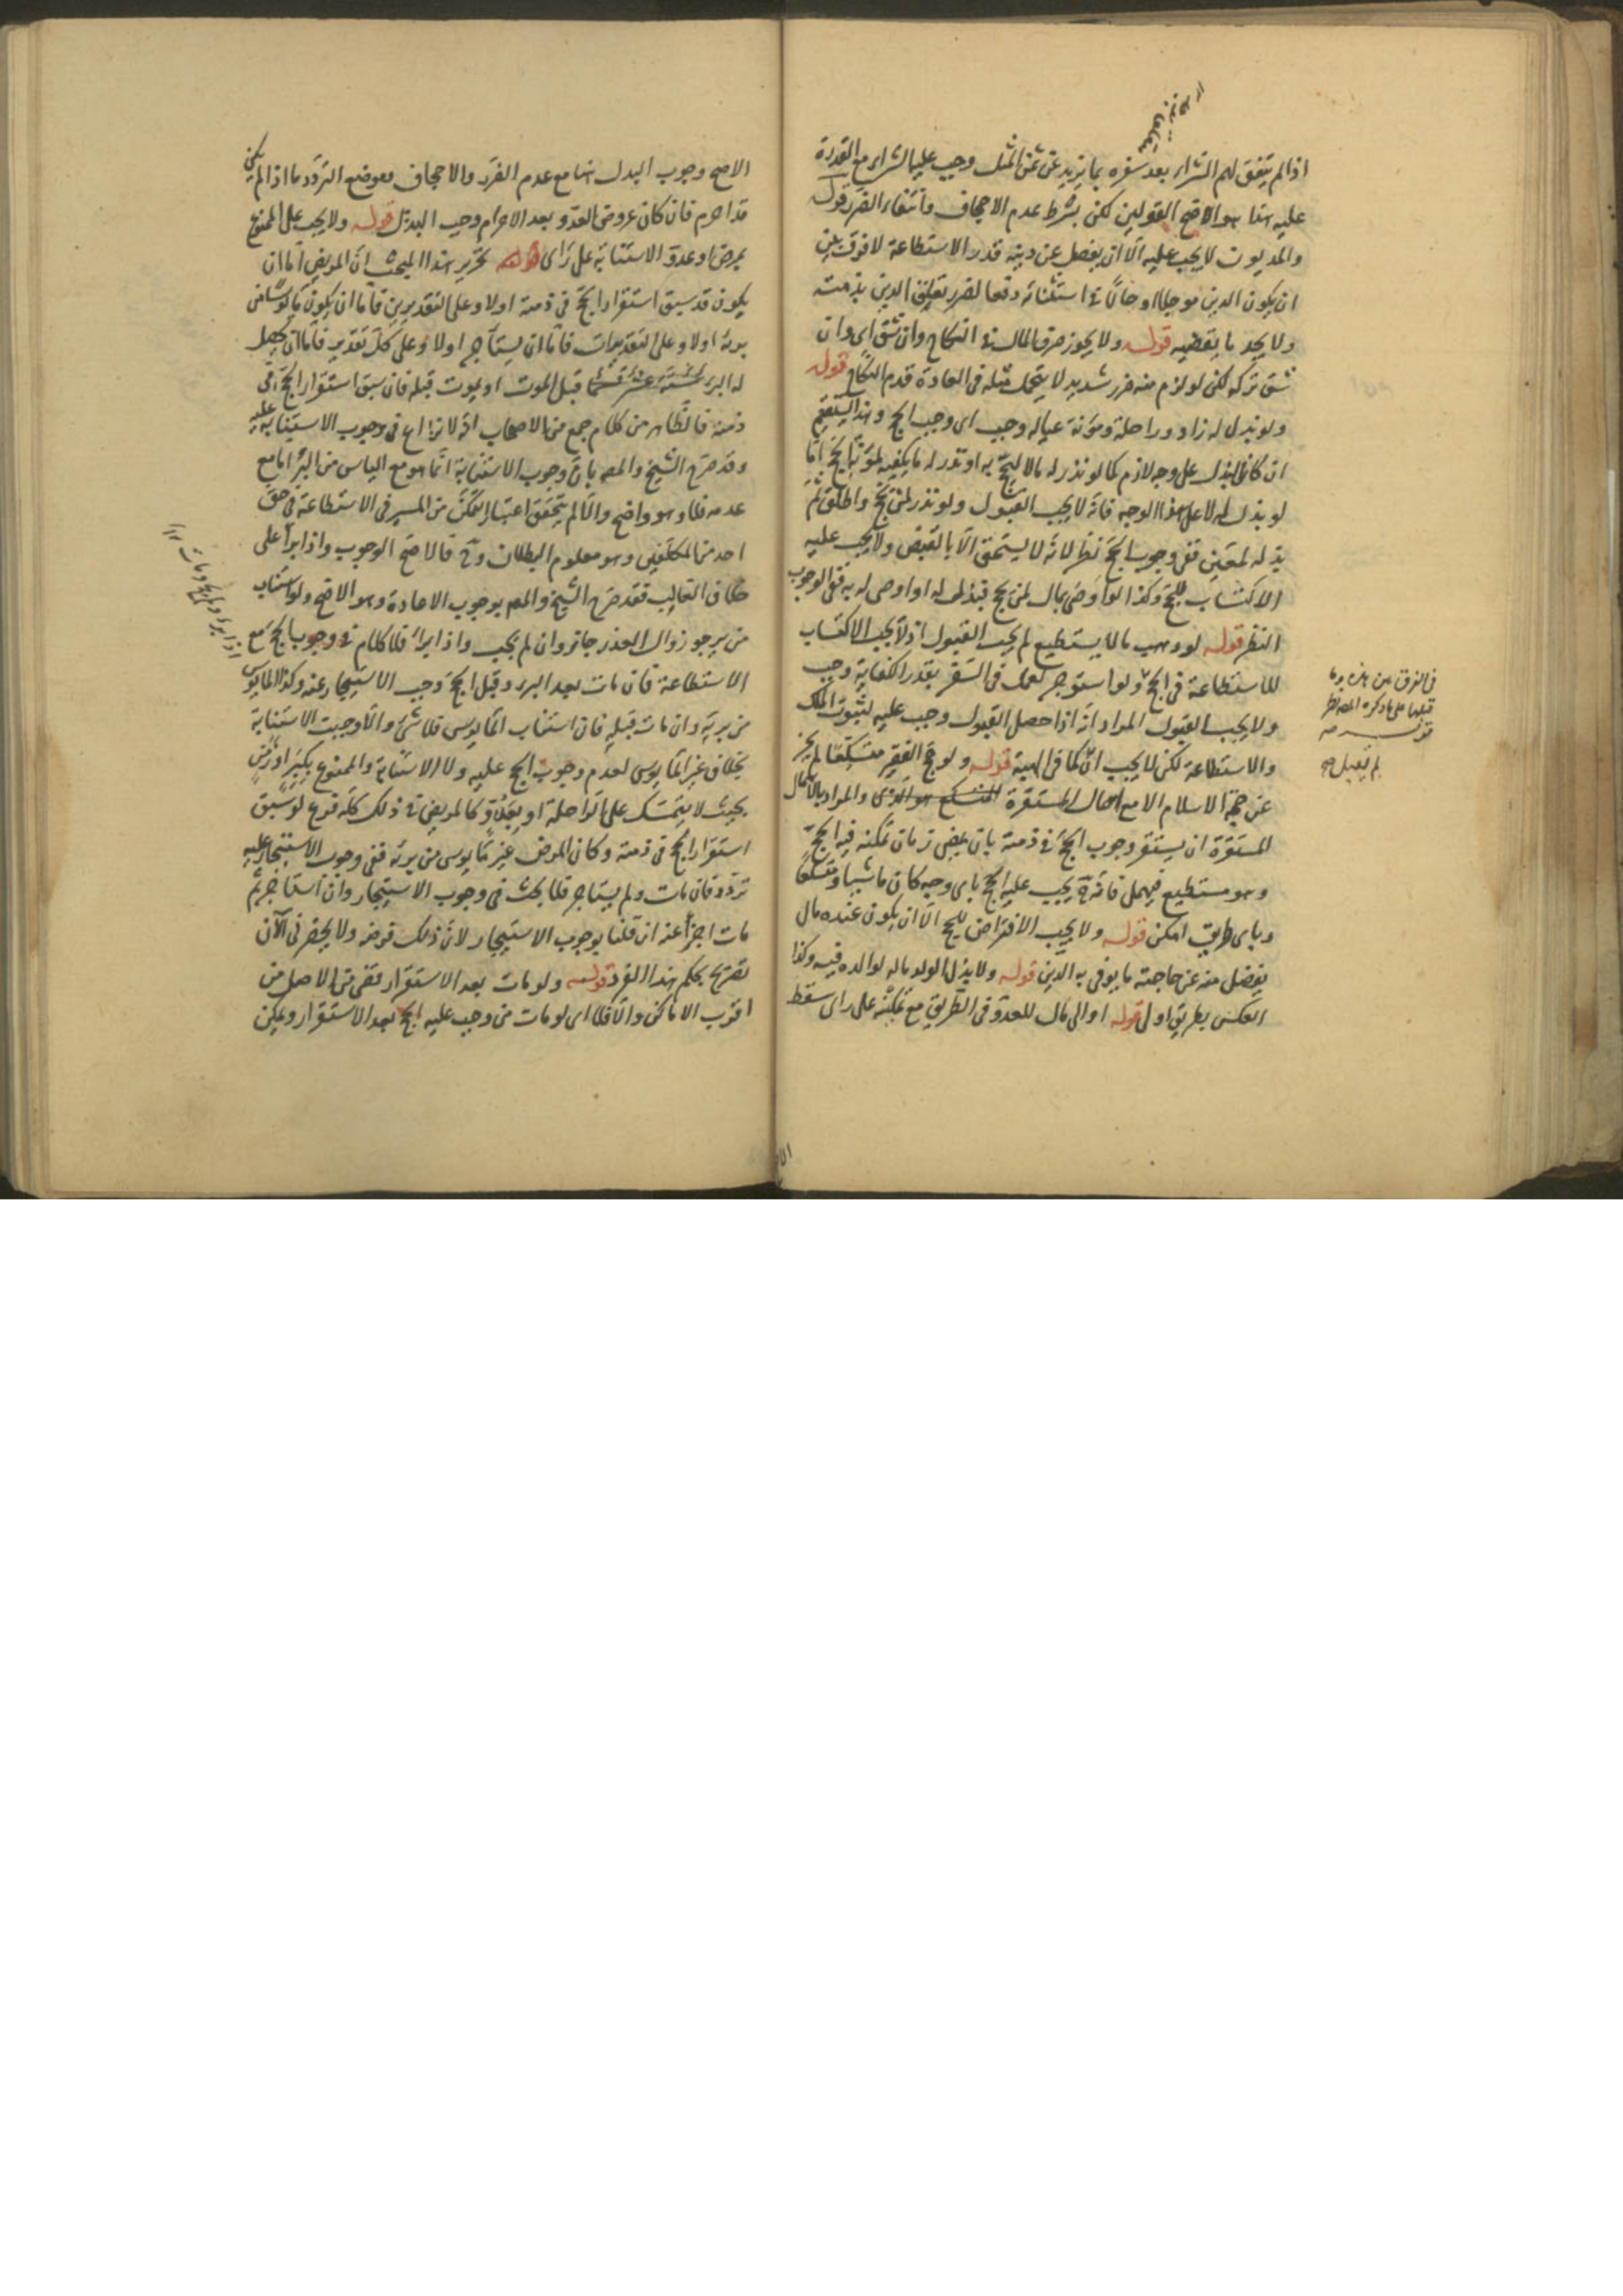 اذا لم يتفق لهم الشراء بعد سفره بما يزيد عن ثمن المثل وجب عليه الشراء مع القدرة
عليه هذا هو الاصح القولين لكن بشرط عدم الاجحاف وانتفاء الضرر قوله
والمديون لا يجب عليه الا ان يفضل عن دينه قدر الاستطاعة لا فرق بين
ان يكون الدين موجلا او حالا في استثنائه دفعا لضرر تعلق الدين بذمته
ولا يجد ما يقضيه قوله ولا يجوز صرف المال في النكاح وان شق اي وان
شق تركه لكن لو لزم منه ضرر شديد لا يتحمل مثله في العادة قدم النكاح قوله
ولو بذل له زاد وراحلة ومؤنة عياله وجب اي وجب الحج وهذا يستقيم
ان كان البذل على وجه لازم كما لو نذر له مالا ليحج به او نذر له ما يكفيه لمؤنة الحج اما
لو بذل له لا على هذا الوجه فانه لا يجب القبول ولو نذر لمن يحج واطلق ثم
بذله لمعين ففي وجوب الحج نظر لانه لا يستحق الا بالقبض ولا يجب عليه
الاكتساب للحج وكذا لو اوصى بمال لمن يحج فبذل له او اوصى له به ففي الوجوب
النظر قوله لو وهب مالا يستطيع لم يجب القبول اذ لا يجب الاكتساب
للاستطاعة في الحج ولو استوجر لعمل في السفر بقدر الكفاية وجب
ولا يجب القبول المراد انه اذا حصل القبول وجب عليه لثبوت الملك
والاستطاعة لكن لا يجب كما في الهبة قوله ولو حج الفقير متسكعا لم يجز
عن حجة الاسلام الا مع اهمال المستقرة المتسكع هو الذي والمراد بالاهمال
المستقرة ان يستقر وجوب الحج في ذمته بان يمضي زمان يمكنه فيه الحج
وهو مستطيع فيهمل فانه ح يجب عليه الحج باي وجه كان ماشيا ومتسكعا
وباي طريق امكن قوله ولا يجب الاقتراض للحج الا ان يكون عنده مال
يفضل منه عن حاجته ما يوفي به الدين قوله ولا بذل الولد ماله لوالده فيه وكذا
العكس بطريق اولى قوله او الى مال للعدو في الطريق مع تمكنه على راي سقط
في الفرق بين هذه وما
قبلها على ما ذكره المصـ نظر
لم يقبل صح
الاصح وجوب البذل هنا مع عدم الضرر والاجحاف وموضع التردد ما اذا لم يكن
قد احرم فان كان عروض العدو بعد الاحرام وجب البذل قوله ولا يجب على الممنوع
بمرض او عدو الاستنابة على راي قوله تحرير هذا المبحث ان المريض اما ان
يكون قد سبق استقرار الحج في ذمته او لا وعلى التقديرين فاما ان يكون مايوسا من
برئه او لا وعلى التقديرات فاما ان يستاجر او لا وعلى كل تقدير فاما ان يحصل
له البرء قبل الموت او يموت قبله فان سبق استقرار الحج في
ذمته فالظاهر من كلام جمع من الاصحاب انه لا نزاع في وجوب الاستنابة عليه
وقد صرح الشيخ والمصـ بان وجوب الاستنابة انما هو مع الياس من البرء اما مع
عدمه فلا وهو واضح والا لم يتحقق اعتبار التمكن من المسير في الاستطاعة في حق
احد من المكلفين وهو معلوم البطلان وح فالاصح الوجوب واذا برأ على
خلاف الغالب فقد صرح الشيخ والمصـ بوجوب الاعادة وهو الاصح ولو استناب
من يرجو زوال العذر جاز وان لم يجب واذا برأ فلا كلام في وجوب الحج مع
الاستطاعة فان مات بعد البرء وقبل الحج وجب الاستيجار عنه وكذا المايوس
من برئه وان مات قبله فان استناب المايوس فلا شيء والا وجبت الاستنابة
بخلاف غير المايوس لعدم وجوب الحج عليه ولا الاستنابة والممنوع بكبر او زمن
بحيث لا يتمسك على الراحلة او بعدو كالمريض في ذلك كله فرع لو سبق
استقرار الحج في ذمته وكان المرض غير مايوس من برئه ففي وجوب الاستيجار عليه
تردد فان مات ولم يستاجر فلا بحث في وجوب الاستيجار وان استاجر ثم
مات اجزأ عنه ان قلنا بوجوب الاستيجار لان ذلك فرضه ولا يحضرني الآن
تصريح بحكم هذا الفرد قوله ولو مات بعد الاستقرار قضى من الاصل من
اقرب الاماكن والا فلا اي لو مات من وجب عليه الحج بعد الاستقرار ويمكن
اذا برأ ولم يحج ومات